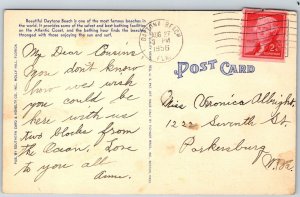 Beautiful Daytona Beach is one of the most famous beaches in
the world. It provides some of the best bathing facilities
on the Atlantic Coast, and the bathing hour finds the beaches
thronged with those enjoying the sun and surf.
My Dear Cousins
you don't know
how we wish
you could be
here with us
two blocks from
the Ocean. Love
to you all
Anne.
DAYTONA BEACH
AUG 27
PM
1956
FLA.
2¢
POST CARD
Miss Veronica Albright
1222 Seventh St.
Parkersburg
W. Va.